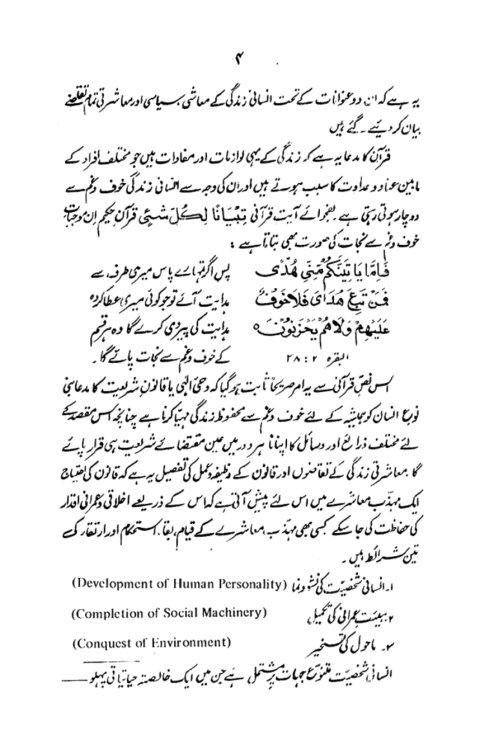 ۴
یہ ہے کہ ان دو عنوانات کے تحت انسانی زندگی کے معاشی سیاسی اور معاشرتی تمام تقاضے
بیان کر دیئے گئے ہیں
قرآن کا مدعا یہ ہے کہ زندگی کے یہی لوازمات اور مفادات ہیں جو مختلف افراد کے
مابین عناد و عداوت کا سبب ہوتے ہیں اور ان کی وجہ سے انسانی زندگی خوف و غم سے
دوچار ہوتی رہتی ہے بفحوائے آیت قرآنی تِبْيَانًا لِكُلِّ شَيْءٍ قرآن حکیم ان موجبات
خوف و غم سے نجات کی صورت بھی بتاتا ہے :
فَاِمَّا يَاْتِيَنَّكُمْ مِنِّي هُدًى پس اگر تمہارے پاس میری طرف سے
فَمَنْ تَبِعَ هُدَايَ فَلَا خَوْفٌ ہدایت آئے تو جو کوئی میری عطا کردہ
عَلَيْهِمْ وَلَا هُمْ يَحْزَنُوْنَ ہدایت کی پیروی کرے گا وہ ہر قسم
البقرہ ۲ : ۳۸ کے خوف و غم سے نجات پائے گا۔
اس نص قرآنی سے یہ امر صریحاً ثابت ہو گیا کہ وحی الٰہی یا قانون شریعت کا مدعا بنی
نوع انسان کو ہمیشہ کے لئے خوف و غم سے محفوظ زندگی مہیا کرنا ہے چنانچہ اس مقصد کے
لئے مختلف ذرائع اور وسائل کا اپنانا ہر دور میں عین مقتضائے شریعت ہی قرار پائے
گا معاشرتی زندگی کے تقاضوں اور قانون کے وظیفہ و عمل کی تفصیل یہ ہے کہ قانون کی احتیاج
ایک مہذب معاشرے میں اس لئے پیش آتی ہے کہ اس کے ذریعے اخلاقی و عمرانی اقدار
کی حفاظت کی جا سکے کسی بھی مہذب معاشرے کے قیام، بقا، استحکام اور ارتقار کی
تین شرائط ہیں۔
۱۔ انسانی شخصیت کی نشوونما (Development of Human Personality)
۲۔ ہیئت عمرانی کی تکمیل (Completion of Social Machinery)
۳۔ ماحول کی تسخیر (Conquest of Environment)
انسانی شخصیت متنوع جہات پر مشتمل ہے جن میں ایک خالصتہ حیاتیاتی پہلو